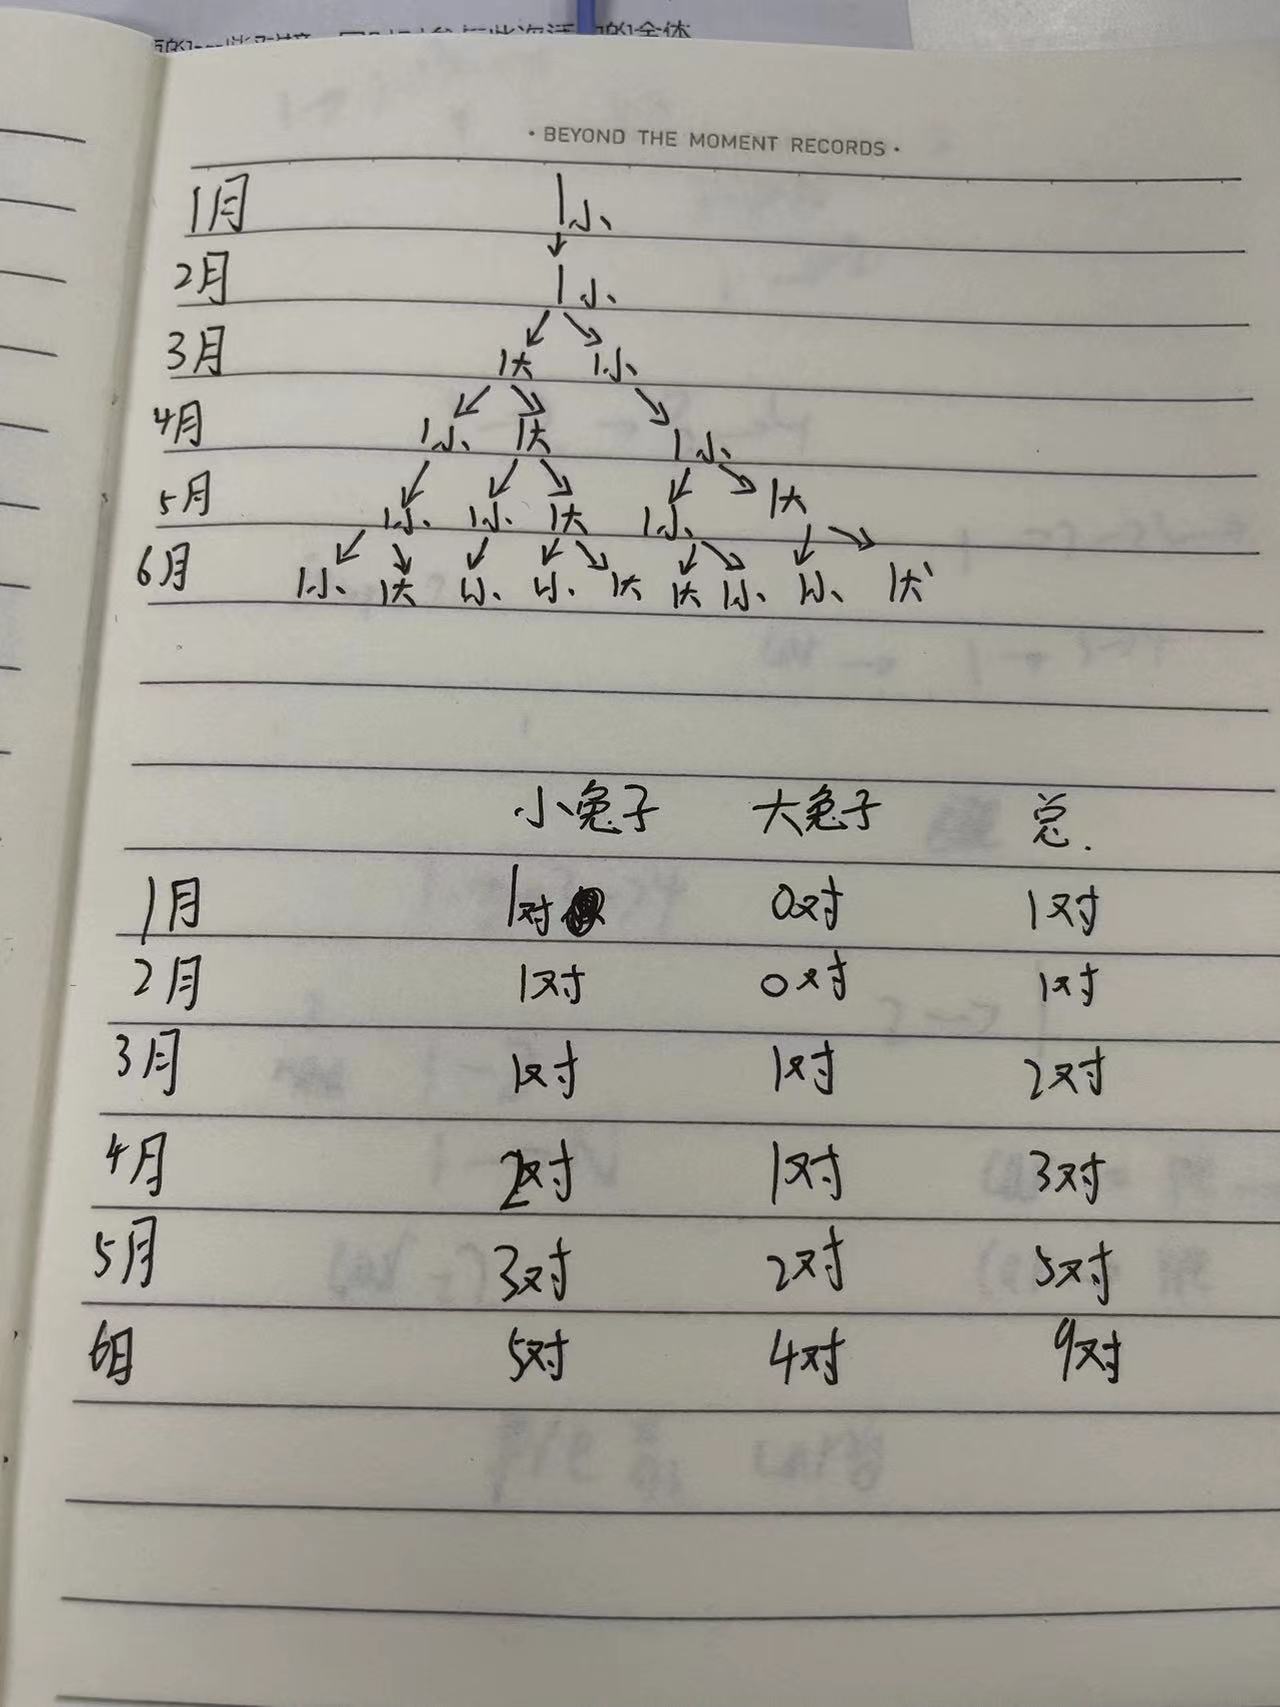 · BEYOND THE MOMENT RECORDS ·
1月 1小
2月 1小
3月 1大 1小
4月 1小 1大 1小
5月 1小 1小 1大 1小 1大
6月 1小 1大 1小 1小 1大 1大 1小 1小 1大
小兔子 大兔子 总.
1月 1对 0对 1对
2月 1对 0对 1对
3月 1对 1对 2对
4月 2对 1对 3对
5月 3对 2对 5对
6月 5对 4对 9对